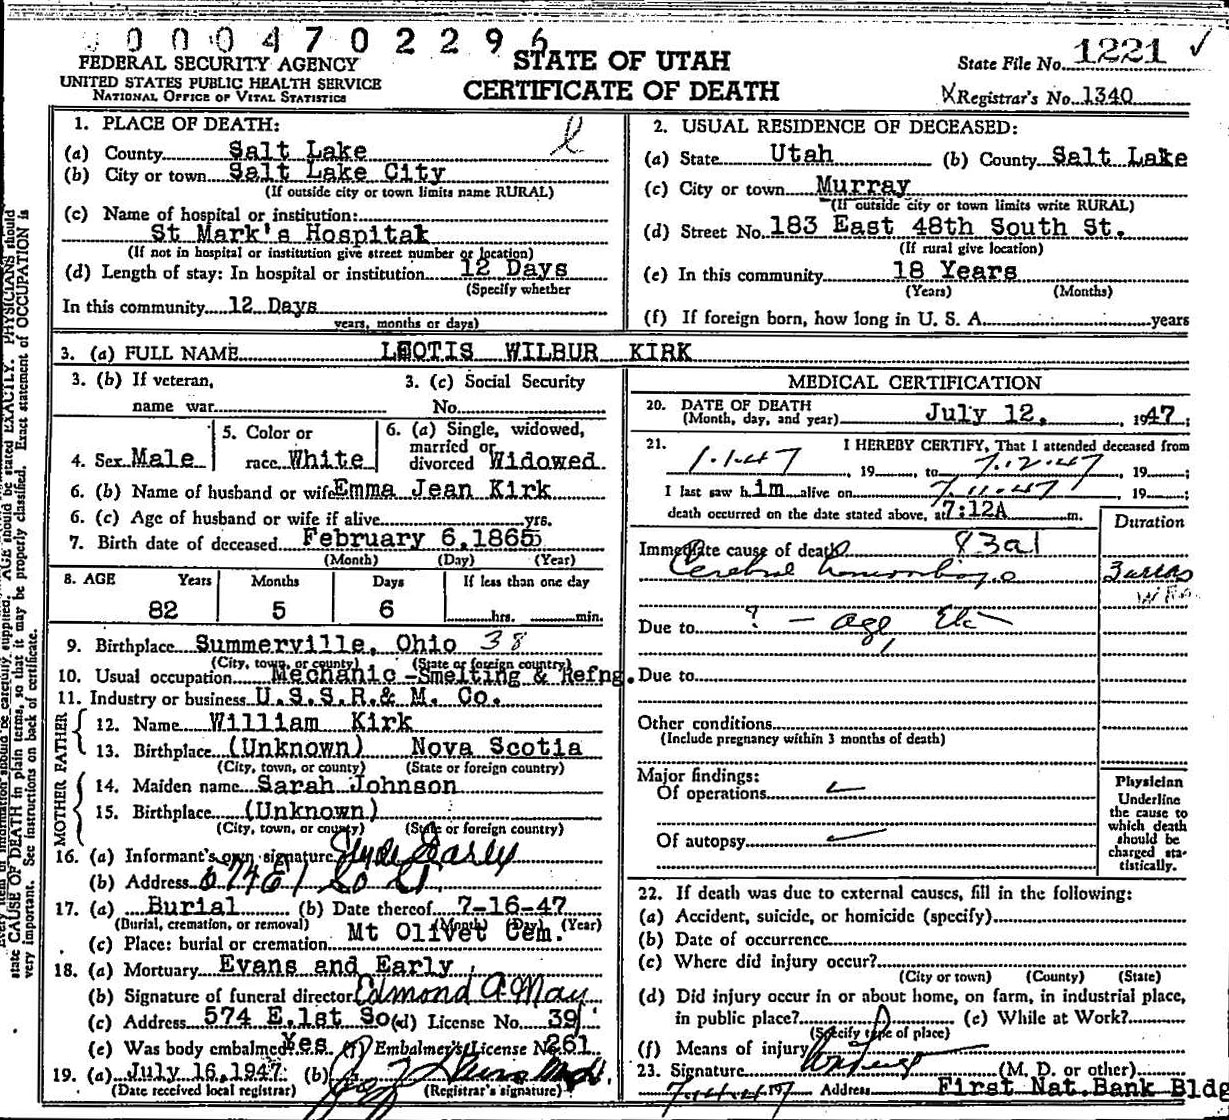 0 0 0 4 7 0 2 2 9 6
FEDERAL SECURITY AGENCY
UNITED STATES PUBLIC HEALTH SERVICE
NATIONAL OFFICE OF VITAL STATISTICS
STATE OF UTAH
CERTIFICATE OF DEATH
State File No. 1221 ✓
Registrar's No. 1340
1. PLACE OF DEATH:
(a) County Salt Lake
(b) City or town Salt Lake City
(If outside city or town limits name RURAL)
(c) Name of hospital or institution:
St Mark's Hospital
(If not in hospital or institution give street number or location)
(d) Length of stay: In hospital or institution 12 Days
(Specify whether
In this community 12 Days
years, months or days)
2. USUAL RESIDENCE OF DECEASED:
(a) State Utah (b) County Salt Lake
(c) City or town Murray
(If outside city or town limits write RURAL)
(d) Street No. 183 East 48th South St.
(If rural give location)
(e) In this community 18 Years
(Years) (Months)
(f) If foreign born, how long in U. S. A. years
3. (a) FULL NAME LEOTIS WILBUR KIRK
3. (b) If veteran,
name war
3. (c) Social Security
No.
4. Sex Male
5. Color or
race White
6. (a) Single, widowed,
married or
divorced Widowed.
6. (b) Name of husband or wife Emma Jean Kirk
6. (c) Age of husband or wife if alive yrs.
7. Birth date of deceased February 6, 1865
(Month) (Day) (Year)
8. AGE Years Months Days If less than one day
82 5 6 hrs. min.
9. Birthplace Summerville, Ohio 38
(City, town, or county) (State or foreign country)
10. Usual occupation Mechanic -Smelting & Refng.
11. Industry or business U.S.S.R.& M. Co.
FATHER
12. Name William Kirk
13. Birthplace (Unknown) Nova Scotia
(City, town, or county) (State or foreign country)
MOTHER
14. Maiden name Sarah Johnson
15. Birthplace (Unknown)
(City, town, or county) (State or foreign country)
16. (a) Informant's own signature
(b) Address
17. (a) Burial (b) Date thereof 7-16-47
(Burial, cremation, or removal) (Month) (Day) (Year)
(c) Place: burial or cremation Mt Olivet Cem.
18. (a) Mortuary Evans and Early
(b) Signature of funeral director Edmond A May
(c) Address 574 E.1st So (d) License No. 39
(e) Was body embalmed Yes (f) Embalmer's License No 261
19. (a) July 16, 1947 (b)
(Date received local registrar) (Registrar's signature)
MEDICAL CERTIFICATION
20. DATE OF DEATH
(Month, day, and year) July 12, 1947;
21. I HEREBY CERTIFY, That I attended deceased from
1.1.47, 19 , to 7.12.47, 19 ;
I last saw him alive on 7.11.47, 19 ;
death occurred on the date stated above, at 7:12A m.
Duration
Immediate cause of death 83a1
Cerebral hemorrhage
Due to ? - age, Etc
Due to
Other conditions
(Include pregnancy within 3 months of death)
Major findings:
Of operations
Of autopsy
Physician
Underline
the cause to
which death
should be
charged sta-
tistically.
22. If death was due to external causes, fill in the following:
(a) Accident, suicide, or homicide (specify)
(b) Date of occurrence
(c) Where did injury occur?
(City or town) (County) (State)
(d) Did injury occur in or about home, on farm, in industrial place,
in public place? (e) While at Work?
(Specify type of place)
(f) Means of injury
23. Signature (M. D. or other)
Address First Nat. Bank Bldg
AGE should be stated EXACTLY. PHYSICIANS should
state CAUSE OF DEATH in plain terms, so that it may be properly classified. Exact statement of OCCUPATION is
very important. See instructions on back of certificate.